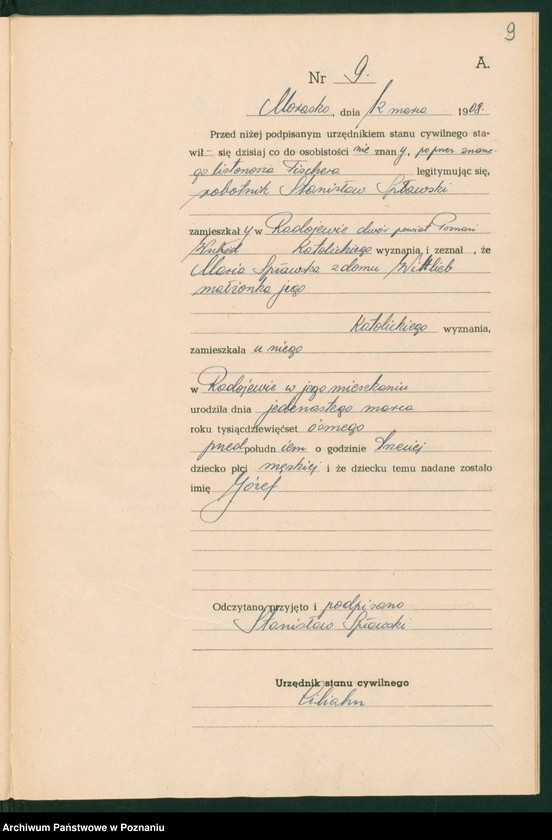 9
A.
Nr 9.
Morasko, dnia 12 marca 1908.
Przed niżej podpisanym urzędnikiem stanu cywilnego sta-
wił – się dzisiaj co do osobistości nie znany, poprzez znane-
go listonosza Fischera legitymując się,
robotnik Stanisław Spławski
zamieszkały w Radojewie dwór powiat Poznań
Wschód Katolickiego wyznania, i zeznał , że
Maria Spławska z domu Wittlieb
małżonka jego
Katolickiego wyznania,
zamieszkała u niego
w Radojewie w jego mieszkaniu
urodziła dnia jedenastego marca
roku tysiącdziewięćset ósmego
przed południem o godzinie trzeciej
dziecko płci męskiej i że dziecku temu nadane zostało
imię Józef
Odczytano, przyjęto i podpisano
Stanisław Spławski
Urzędnik stanu cywilnego
Archiwum Państwowe w Poznaniu